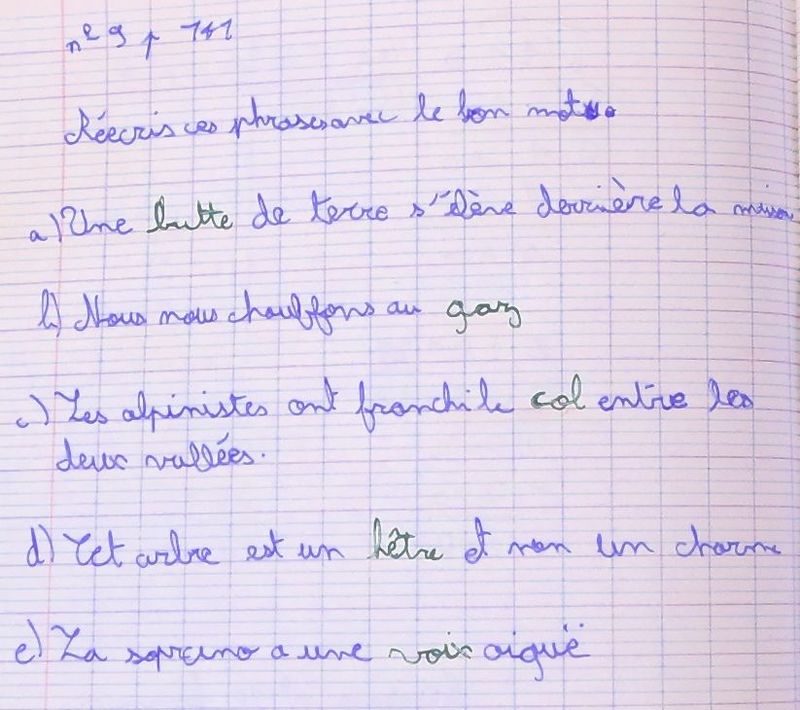 n° 9 p 141
Réecris ces phrases avec le bon mot.
a) Une butte de terre s'élève derrière la maison
b) Nous nous chauffons au gaz
c) Les alpinistes ont franchi le col entre les
deux vallées.
d) Cet arbre est un hêtre et non un charme
e) La soprano a une voix aiguë